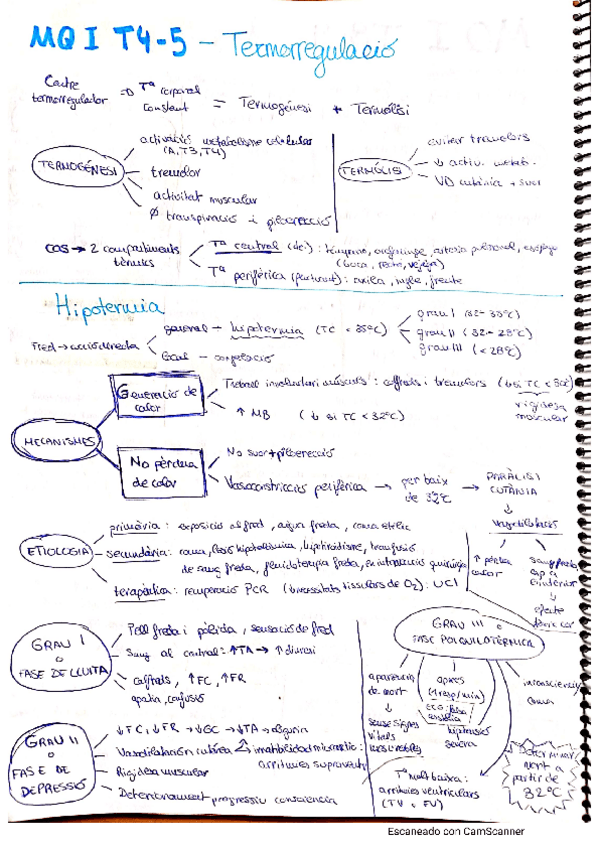 MQ I T4-5 - Termorregulació
Centre termorregulador => Tª corporal constant = Termogénesi + Termólisi
TERMOGÉNESI
activació metabolisme cel·lular (A, T3, T4)
tremolor
activitat muscular
Ø transpiració i piloerecció
TERMÓLISI
evitar tremolors
↓ activ. metab.
VD cutània + suor
COS → 2 compartiments tèrmics
Tª central (dei): , artèria pulmonar, esòfag (boca, recte, vejiga)
Tª perifèrica : axila, ingle, frente
Hipotermia
Fred → acció directa
general - hipotermia (TC < 35ºC)
grau I (32-35ºC)
grau II (32-28ºC)
grau III (<28ºC)
local - congelació
MECANISMES
Generació de calor
Treball involuntari músculs: calfreds i tremolors (↓ si TC < 30ºC)
rigidesa muscular
↑ MB (↓ si TC < 32ºC)
No pèrdua de calor
No suor + piloerecció
Vasoconstricció perifèrica → per baix de 32ºC → PARÀLISI CUTÀNIA
Vasodilatació
↑ pèrdua calor
sang freda cap a l'interior
efecte
ETIOLOGIA
primària: exposició al fred, aigua freda,
secundària: coma, lesió hipotalàmica, hipotiroïdisme, transfusió de sang freda, fluidoteràpia freda, quirúrgica
terapèutica: recuperació PCR (↓ necessitats tissulars de O2): UCI
GRAU I o FASE DE LLUITA
Pell freda i pàlida, sensació de fred
Sang al central: ↑TA → ↑ diuresi
calfreds, ↑FC, ↑FR
apatia, confusió
GRAU II o FASE DE DEPRESSIÓ
↓FC, ↓FR → ↓GC → ↓TA → oligúria
Vasodilatación cutánea inestabilidad miocardio: arritmies supraventr.
Rigidesa muscular
Deteriorament progressiu consciencia
GRAU III o FASE POIQUILOTÈRMICA
apariencia de mort
sense signes vitals
apnea (1 resp/min)
hipotensió severa
inconsciencia
coma
Tª molt baixa: arritmies ventriculars (TV o FV)
Determinar mort a partir de 32ºC
Escaneado con CamScanner